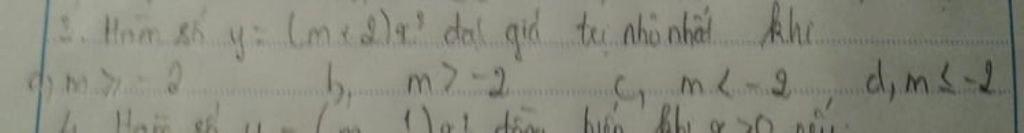 3. Hàm số y = (m + 2)x² đạt giá trị nhỏ nhất khi
a, m ≥ -2 b, m > -2 c, m < -2 d, m ≤ -2
4. Hàm số y = (m 1)x² đồng biến khi x > 0 nếu